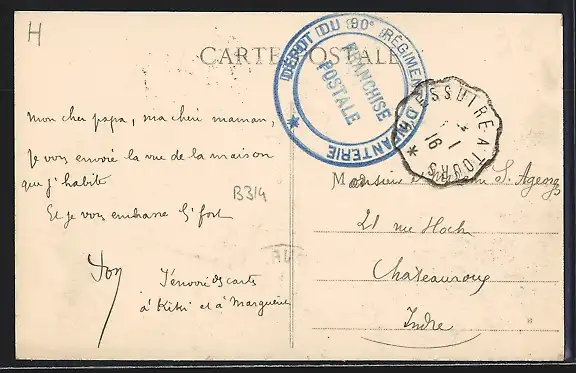 H
CARTE POSTALE
DÉPÔT DU 90e RÉGIMENT D'INFANTERIE
FRANCHISE
POSTALE
BRESSUIRE A TOURS
4 1
16
Mon cher papa, ma chère maman,
Je vous envoie la vue de la maison
que j'habite
Et je vous embrasse bien fort
J'envoie des cartes
à Kiki et à Marguerite
B314
Monsieur S. Ageng
21 rue Hoche
Chateauroux
Indre